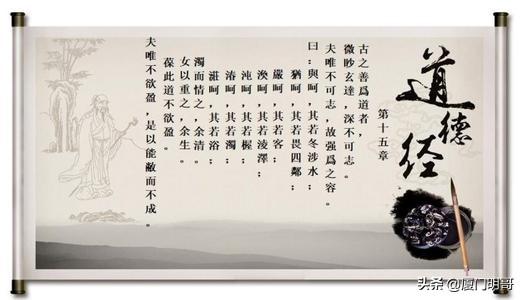 道德经
第十五章
古之善爲道者，
微眇玄達，深不可志。
夫唯不可志，故强爲之容。
曰：與呵，其若冬涉水：
猶呵，其若畏四鄰：
嚴呵，其若客：
渙呵，其若淩澤：
沌呵，其若樸：
湷呵，其若濁：
湛呵，其若浴：
濁而情之，余清。
女以重之，余生。
葆此道不欲盈。
夫唯不欲盈，是以能敝而不成。
头条 @厦门明哥